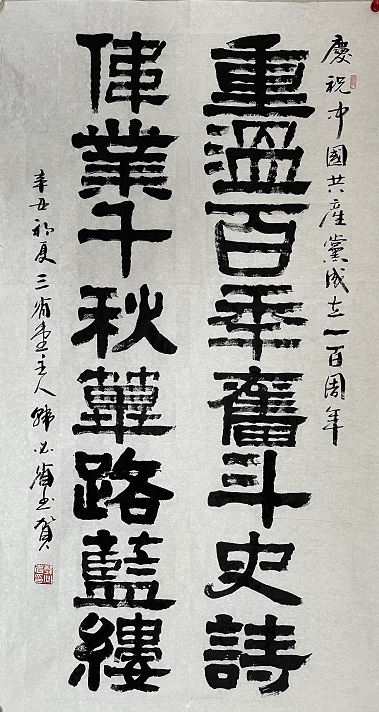 慶祝中國共產黨成立一百周年
重溫百年奮斗史詩
偉業千秋蓽路藍縷
辛丑初夏三省堂主人韓必省書賀